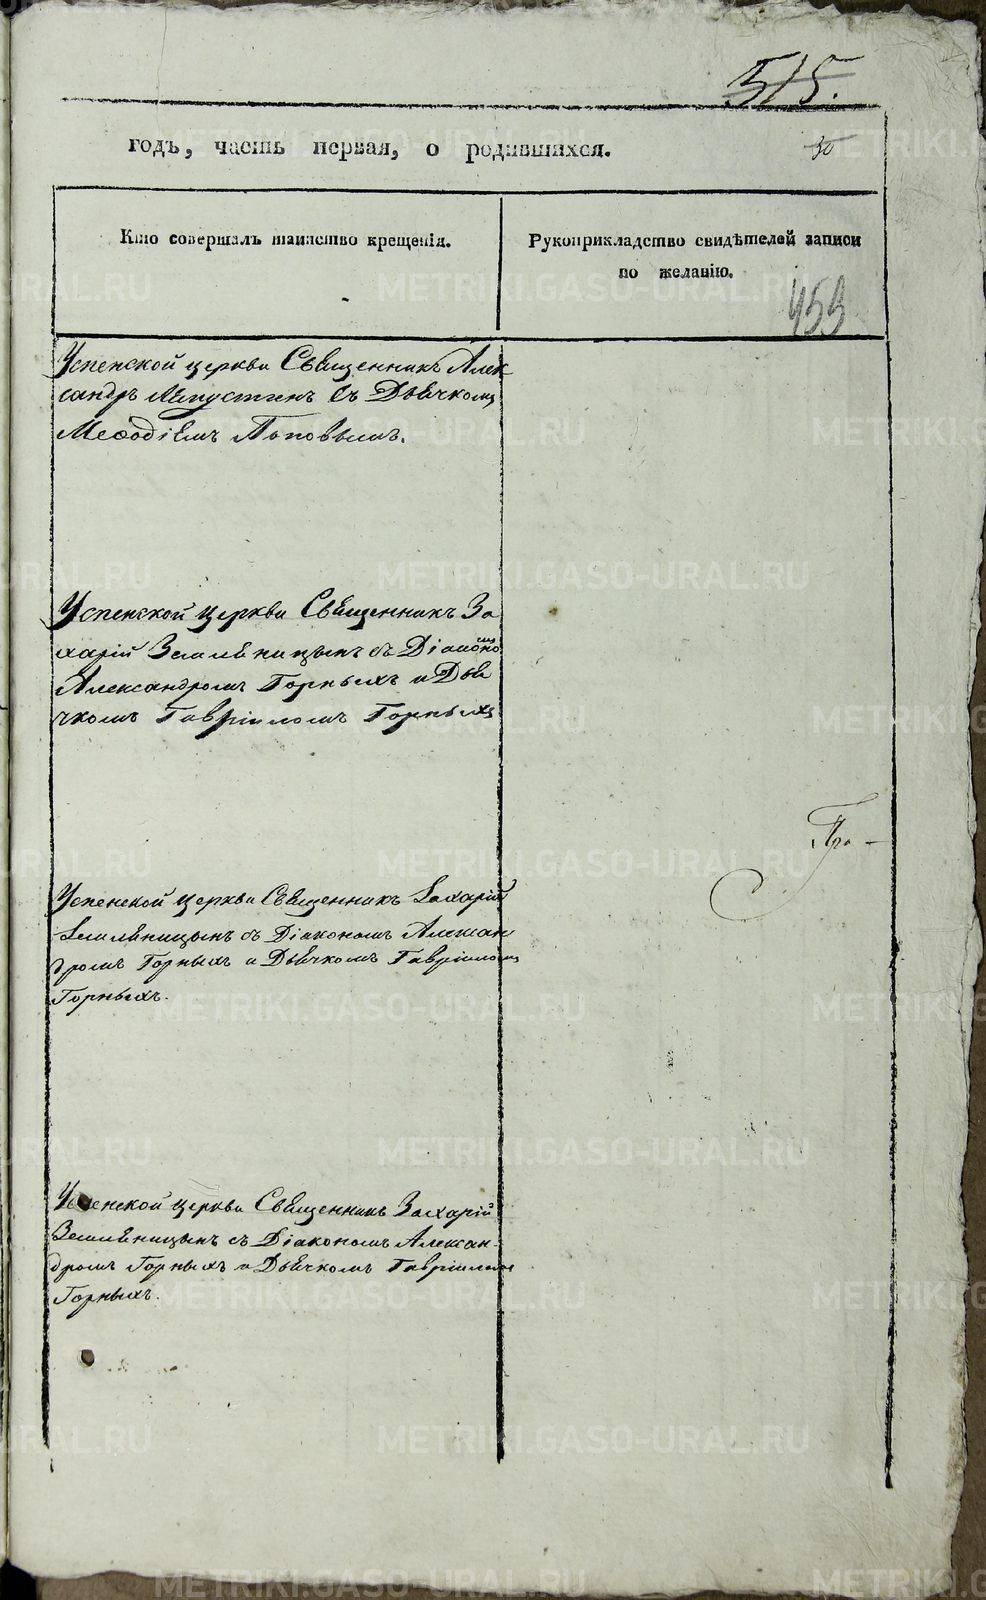 515.
годъ, часть первая, о родившихся.
30
Кто совершалъ таинство крещенія.
Рукоприкладство свидѣтелей записи
по желанію.
453
Успенской церкви Священникъ Алек
сандръ Лепустинъ съ Дьячкомъ
Меѳодіемъ Поповымъ.
Успенской церкви Священникъ За
харій Земляницынъ съ Діакономъ
Александромъ Горныхъ и Дья
чкомъ Гавріиломъ Горныхъ
Про-
Успенской церкви Священникъ Захарій
Земляницынъ съ Діакономъ Алексан
дромъ Горныхъ и Дьячкомъ Гавріиломъ
Горныхъ.
Успенской церкви Священникъ Захарій
Земляницынъ съ Діакономъ Алексан-
дромъ Горныхъ и Дьячкомъ Гавріиломъ
Горныхъ.
METRIKI.GASO-URAL.RU